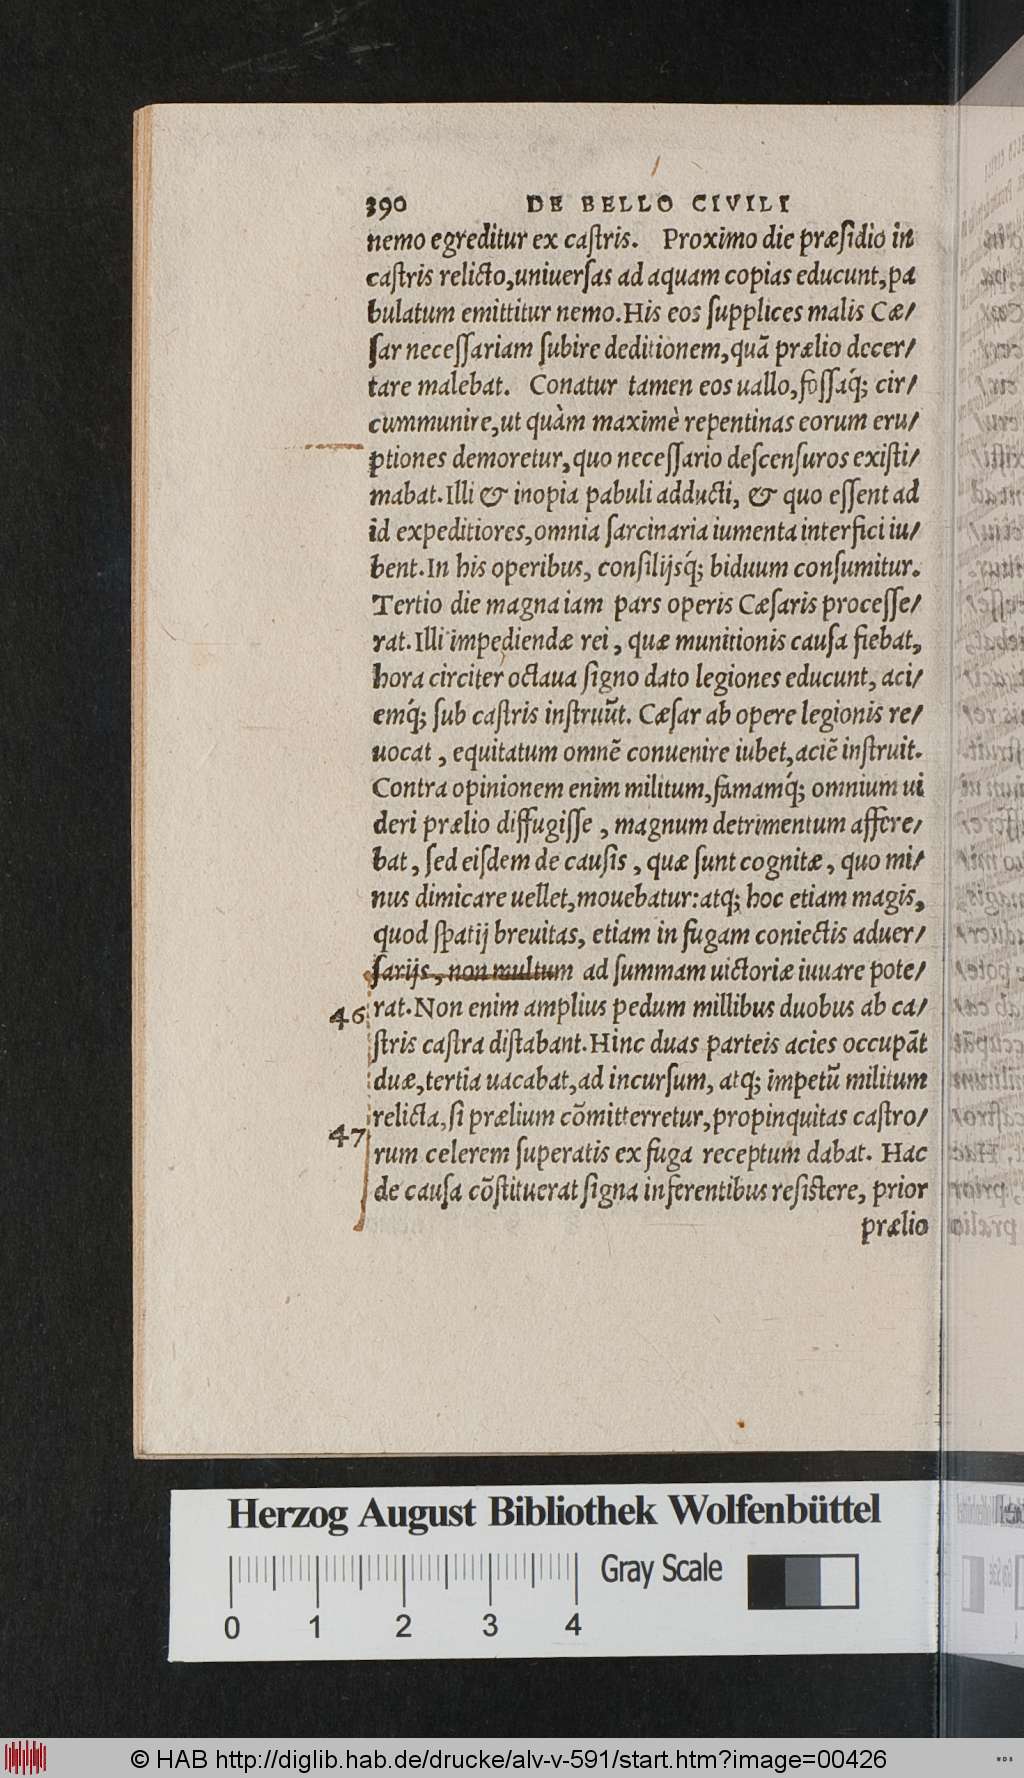 390 DE BELLO CIVILI
nemo egreditur ex caſtris. Proximo die præſidio in
caſtris relicto, uniuerſas ad aquam copias educunt, pa
bulatum emittitur nemo. His eos ſupplices malis Cæ/
ſar neceſſariam ſubire deditionem, quã prælio decer/
tare malebat. Conatur tamen eos uallo, foſſaq́; cir/
cummunire, ut quàm maximè repentinas eorum eru/
ptiones demoretur, quo neceſſario deſcenſuros exiſti/
mabat. Illi & inopia pabuli adducti, & quo eſſent ad
id expeditiores, omnia ſarcinaria iumenta interfici iu/
bent. In his operibus, conſilijsq́; biduum conſumitur.
Tertio die magna iam pars operis Cæſaris proceſſe/
rat. Illi impediendæ rei, quæ munitionis cauſa fiebat,
hora circiter octaua ſigno dato legiones educunt, aci/
emq́; ſub caſtris inſtruũt. Cæſar ab opere legionis re/
uocat, equitatum omnẽ conuenire iubet, aciẽ inſtruit.
Contra opinionem enim militum, famamq́; omnium ui
deri prælio diffugiſſe, magnum detrimentum affere/
bat, ſed eiſdem de cauſis, quæ ſunt cognitæ, quo mi/
nus dimicare uellet, mouebatur: atq; hoc etiam magis,
quod ſpatij breuitas, etiam in fugam coniectis aduer/
ſarijs, non multum ad ſummam uictoriæ iuuare pote/
46 rat. Non enim amplius pedum millibus duobus ab ca/
ſtris caſtra diſtabant. Hinc duas parteis acies occupãt
duæ, tertia uacabat, ad incurſum, atq; impetũ militum
relicta, ſi prælium cõmitterretur, propinquitas caſtro/
47 rum celerem ſuperatis ex fuga receptum dabat. Hac
de cauſa cõſtituerat ſigna inferentibus reſiſtere, prior
prælio
Herzog August Bibliothek Wolfenbüttel
Gray Scale
0 1 2 3 4
© HAB http://diglib.hab.de/drucke/alv-v-591/start.htm?image=00426